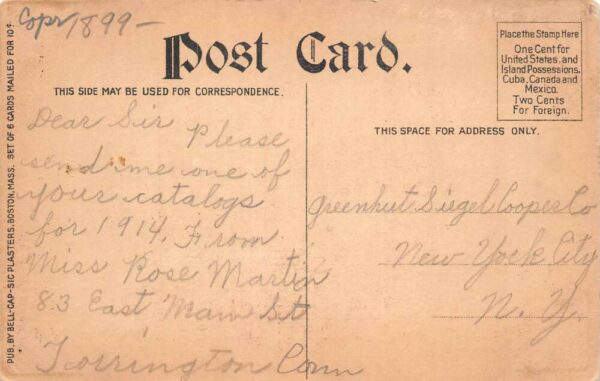 Copr 1899-
Post Card.
THIS SIDE MAY BE USED FOR CORRESPONDENCE.
Place the Stamp Here
One Cent for
United States, and
Island Possessions,
Cuba, Canada and
Mexico.
Two Cents
For Foreign.
THIS SPACE FOR ADDRESS ONLY.
PUB. BY BELL-CAP-SIC PLASTERS, BOSTON, MASS. SET OF 6 CARDS MAILED FOR 10¢
Dear Sir Please
send me one of
your catalogs
for 1914. From
Miss Rose Martin
83 East Main St
Torrington Conn
Greenhut Siegel Cooper Co
New York City
N. Y.